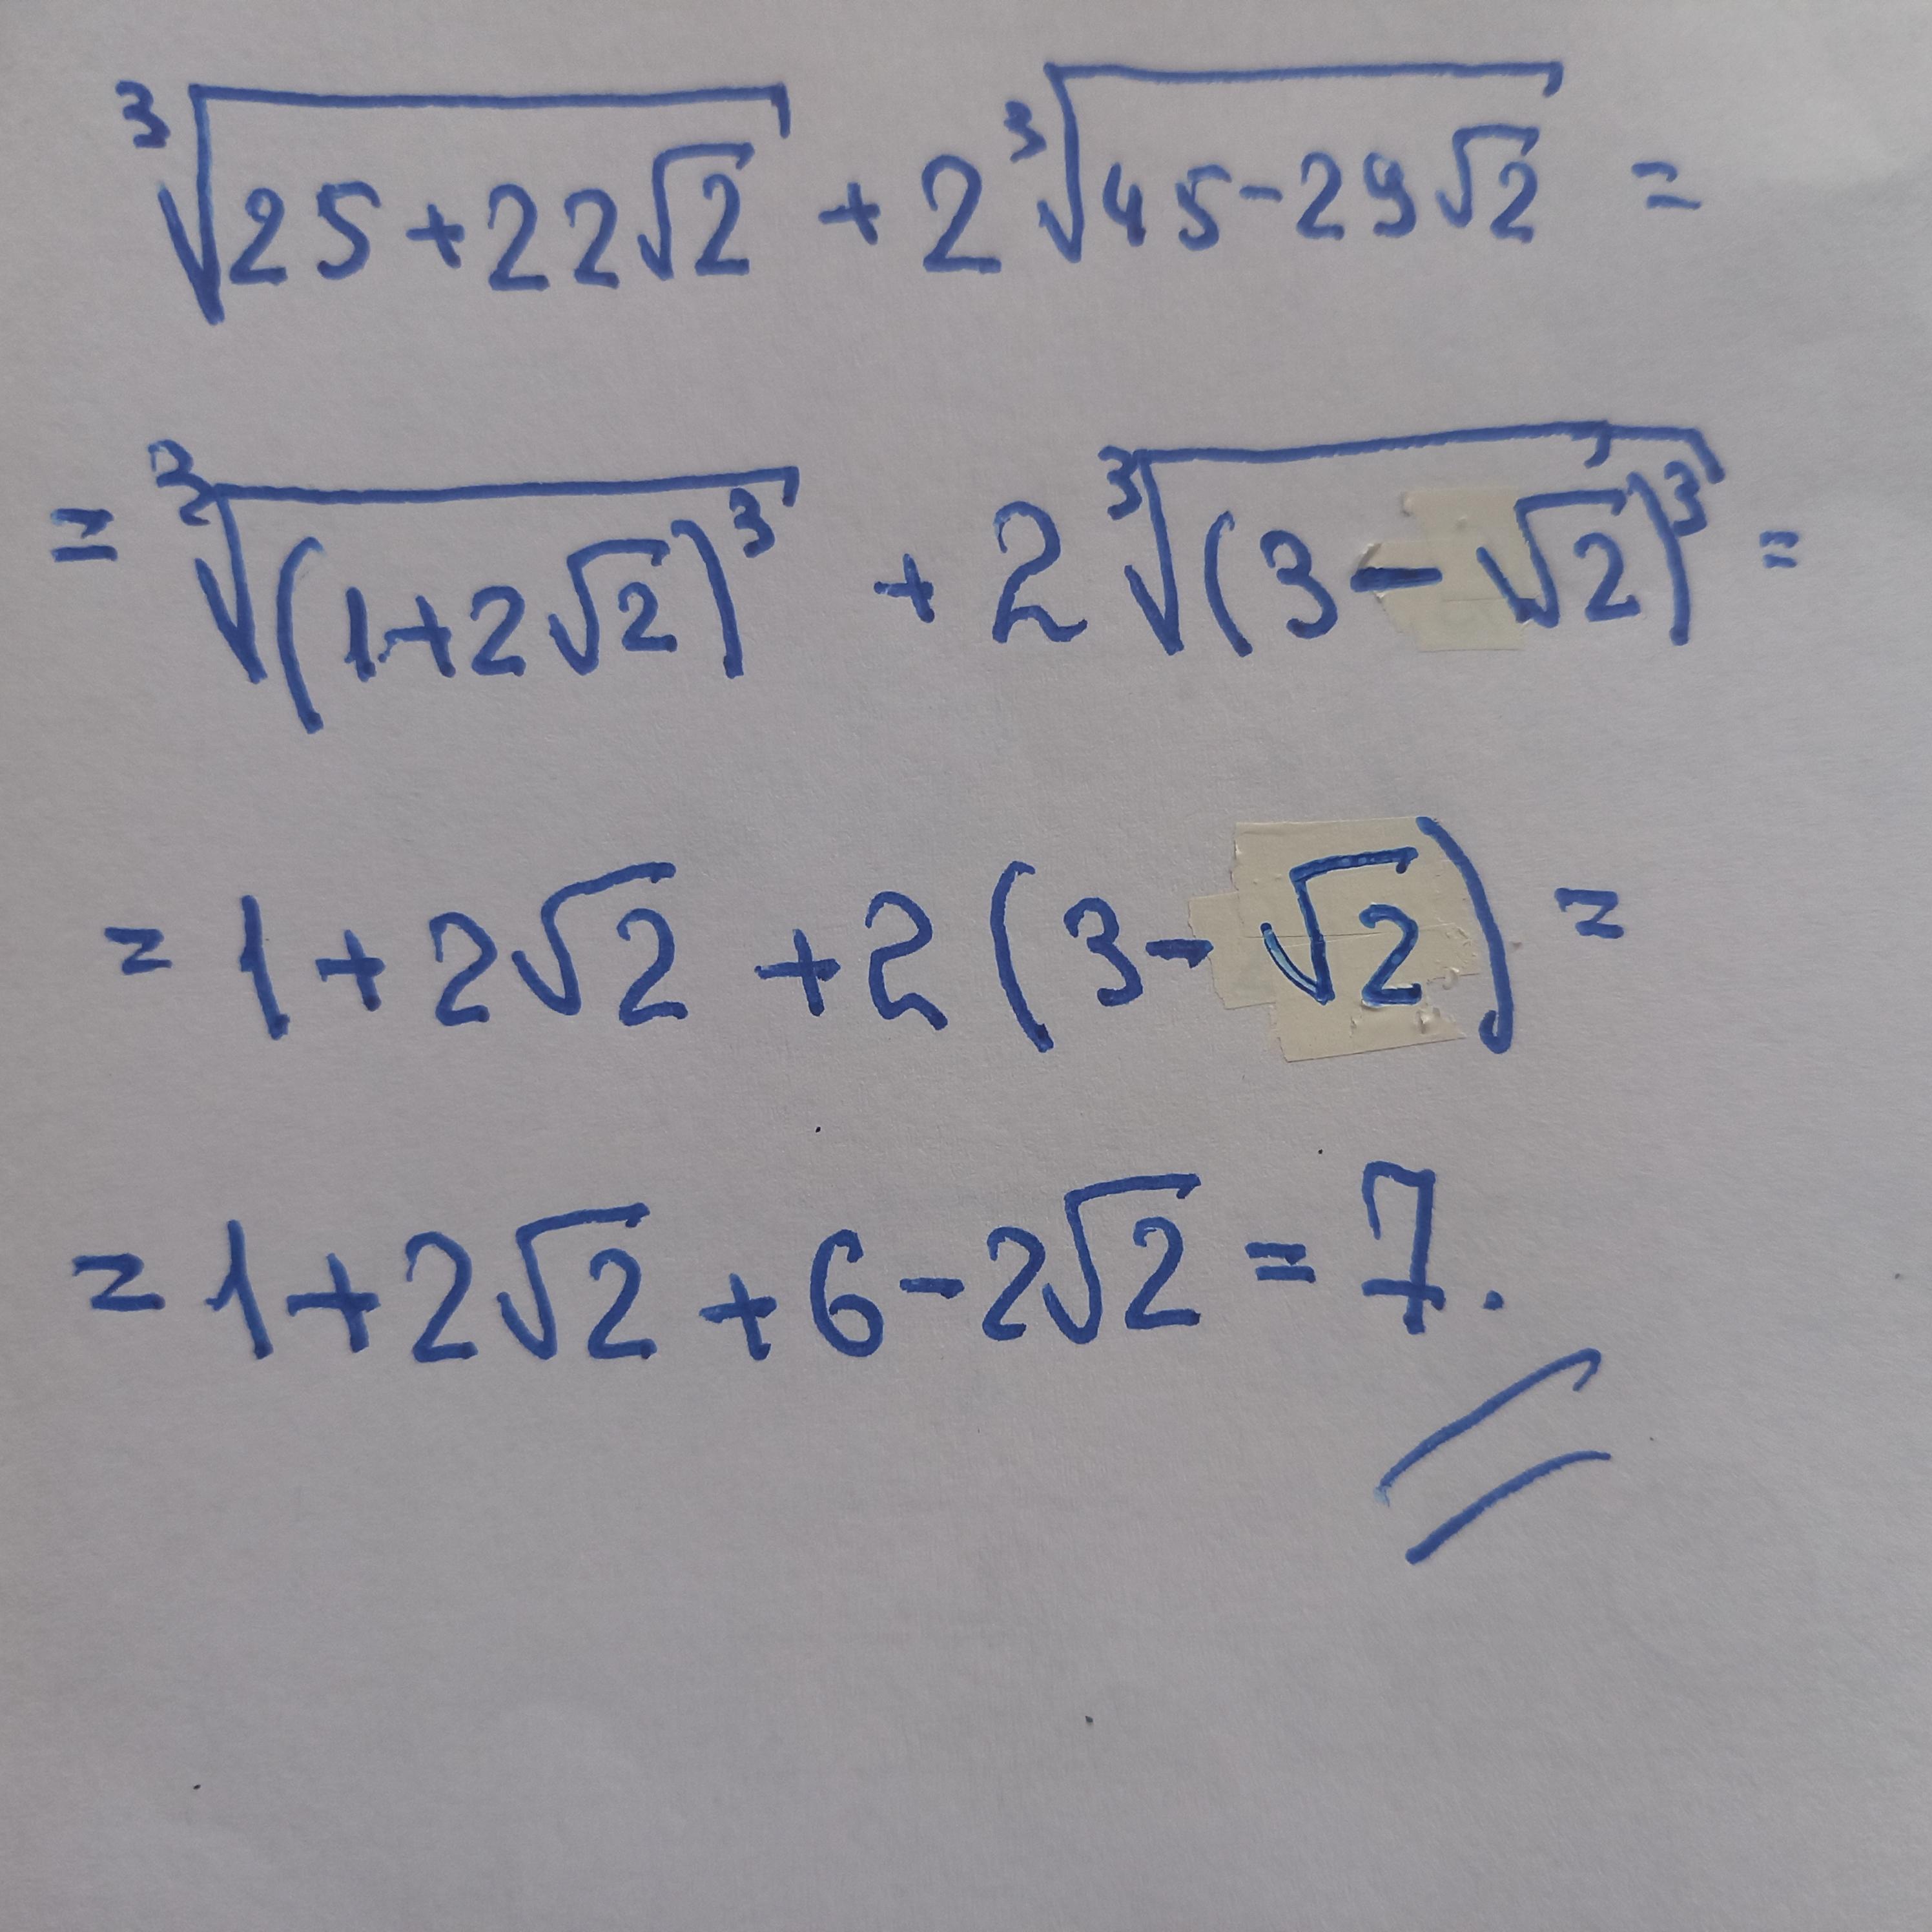 ∛(25+22√2) + 2∛(45-29√2) =
= ∛((1+2√2)³) + 2∛((3-√2)³) =
= 1+2√2 +2(3-√2) =
= 1+2√2 +6-2√2 = 7.